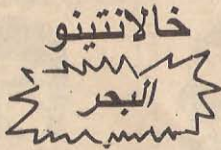 خالانتينو
البحر